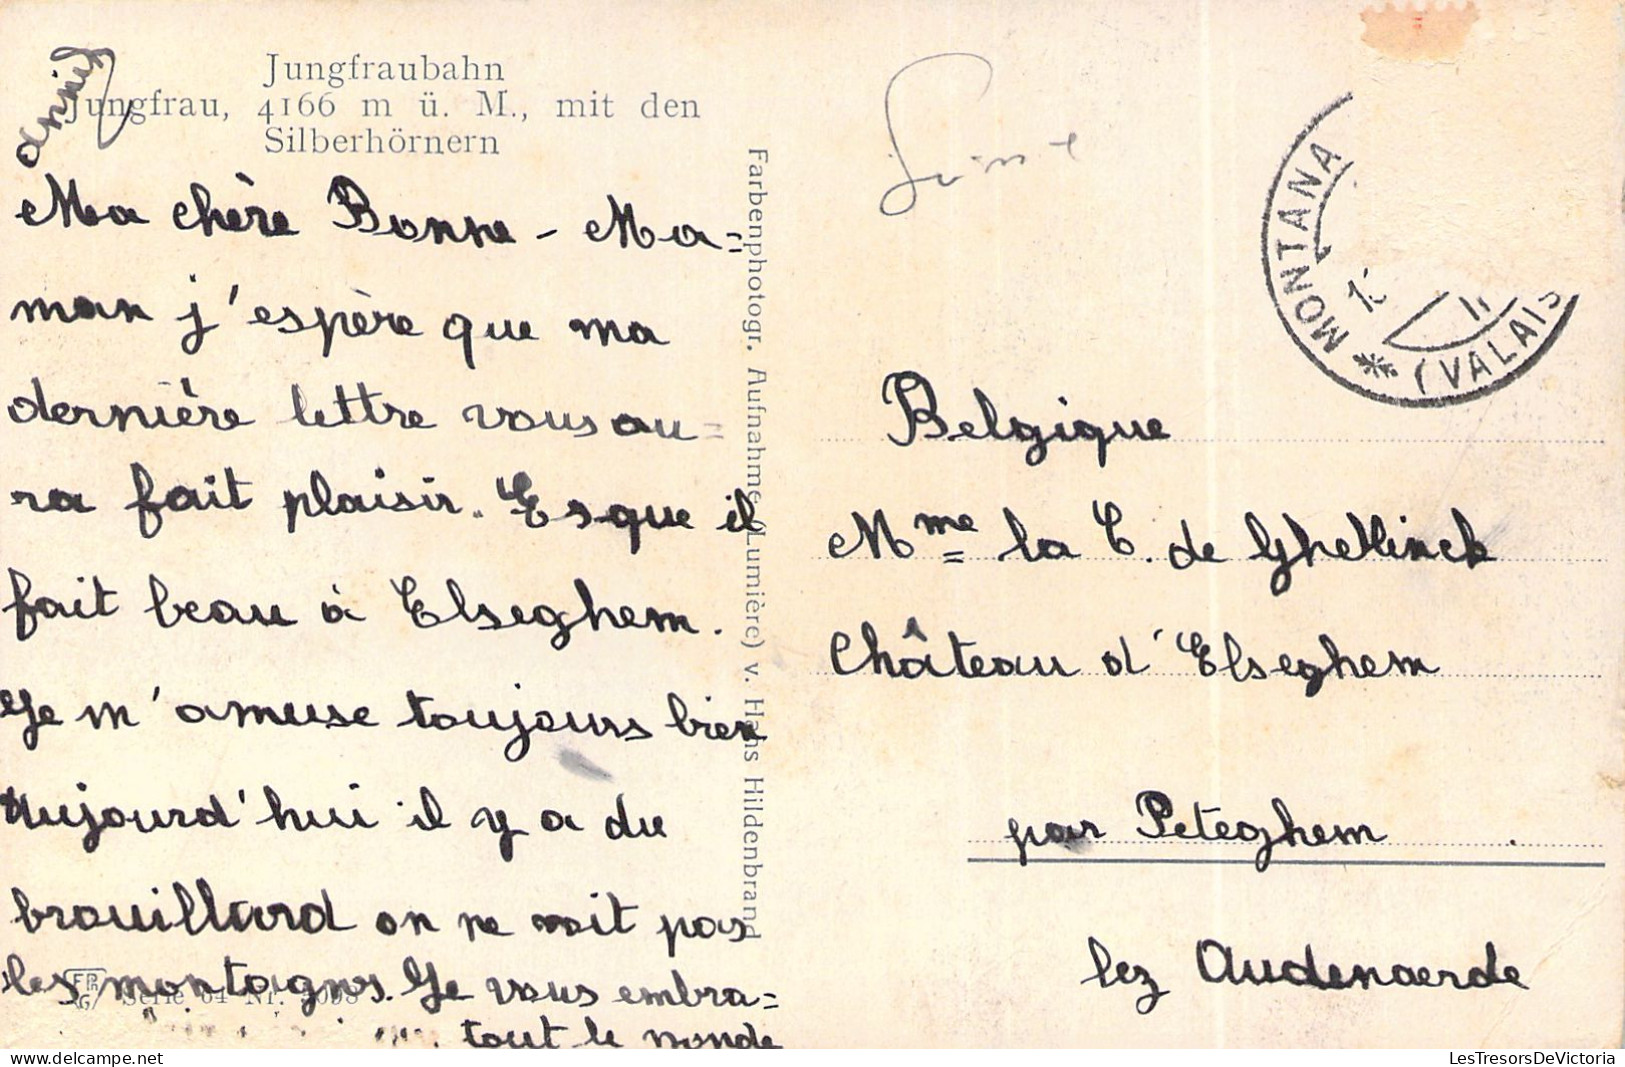 Jungfraubahn
Jungfrau, 4166 m ü. M., mit den
Silberhörnern
Ma chère Bonne-Ma=
man j'espère que ma
dernière lettre vous au=
ra fait plaisir. Esque il
fait beau à Elseghem.
Je m'amuse toujours bien
Aujourd'hui il y a du
brouillard on ne voit pas
les montagns. Je vous embra=
tout le monde
Serie 64 Nr.
Farbenphotogr. Aufnahme (Lumière) v. Hans Hildenbrand
MONTANA
(VALAIS
Belgique
Mme la C. de Ghellinck
Château d'Elseghem
par Peteghem
lez Audenaerde
LesTresorsDeVictoria